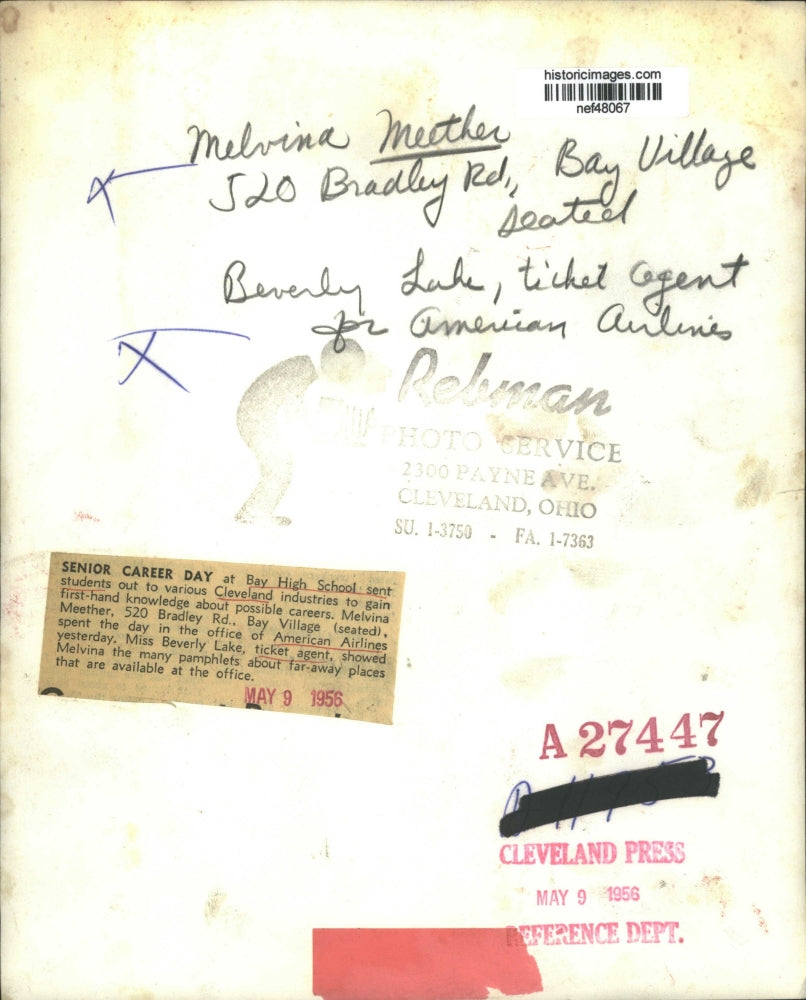 historicimages.com
nef48067
Melvina Meether
520 Bradley Rd., Bay Village
seated
Beverly Lake, ticket agent
for American Airlines
Rebman
PHOTO SERVICE
2300 PAYNE AVE.
CLEVELAND, OHIO
SU. 1-3750 - FA. 1-7363
SENIOR CAREER DAY at Bay High School sent
students out to various Cleveland industries to gain
first-hand knowledge about possible careers. Melvina
Meether, 520 Bradley Rd., Bay Village (seated),
spent the day in the office of American Airlines
yesterday. Miss Beverly Lake, ticket agent, showed
Melvina the many pamphlets about far-away places
that are available at the office.
MAY 9 1956
A 27447
CLEVELAND PRESS
MAY 9 1956
REFERENCE DEPT.